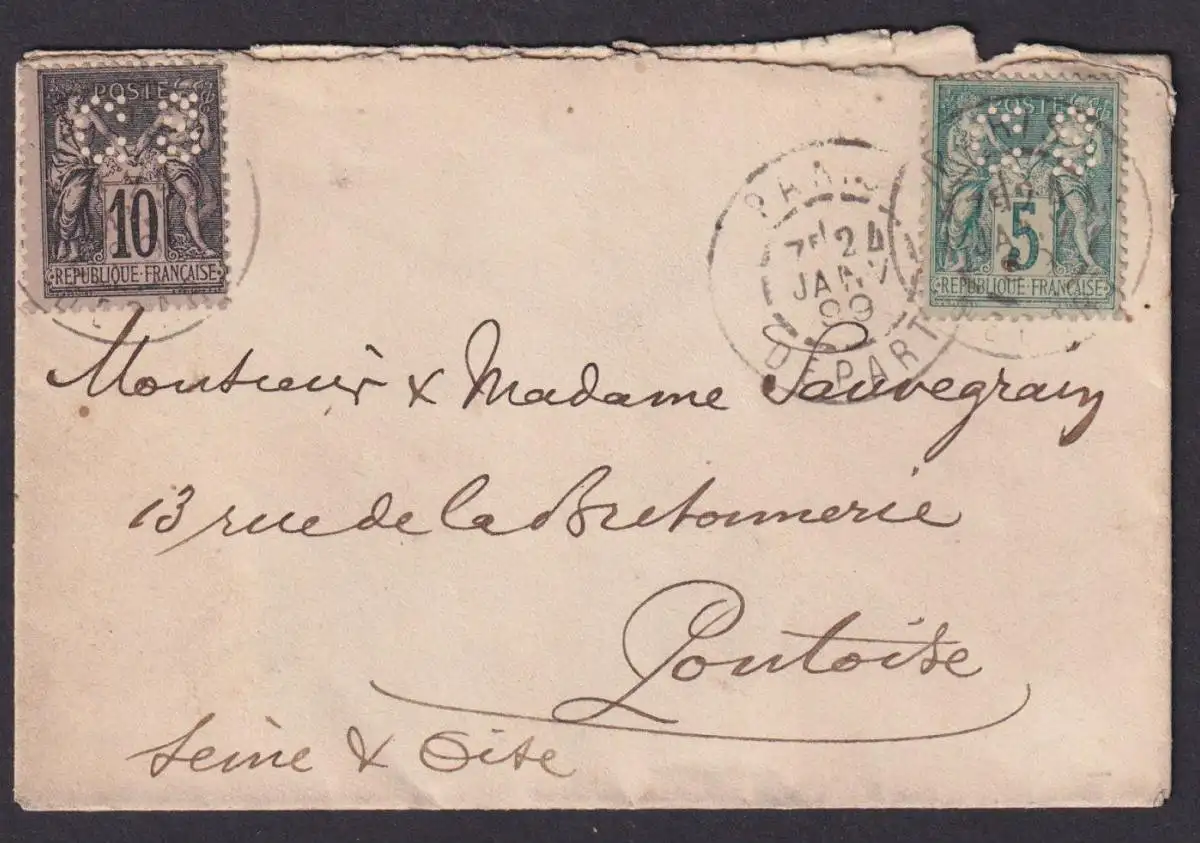 POSTE
10
REPUBLIQUE FRANÇAISE
POSTE
5
REPUBLIQUE FRANÇAISE
PARIS
7E 24
JANV
99
DEPART
Monsieur & Madame Sauvegrain
13 rue de la Bretonnerie
Pontoise
Seine & Oise